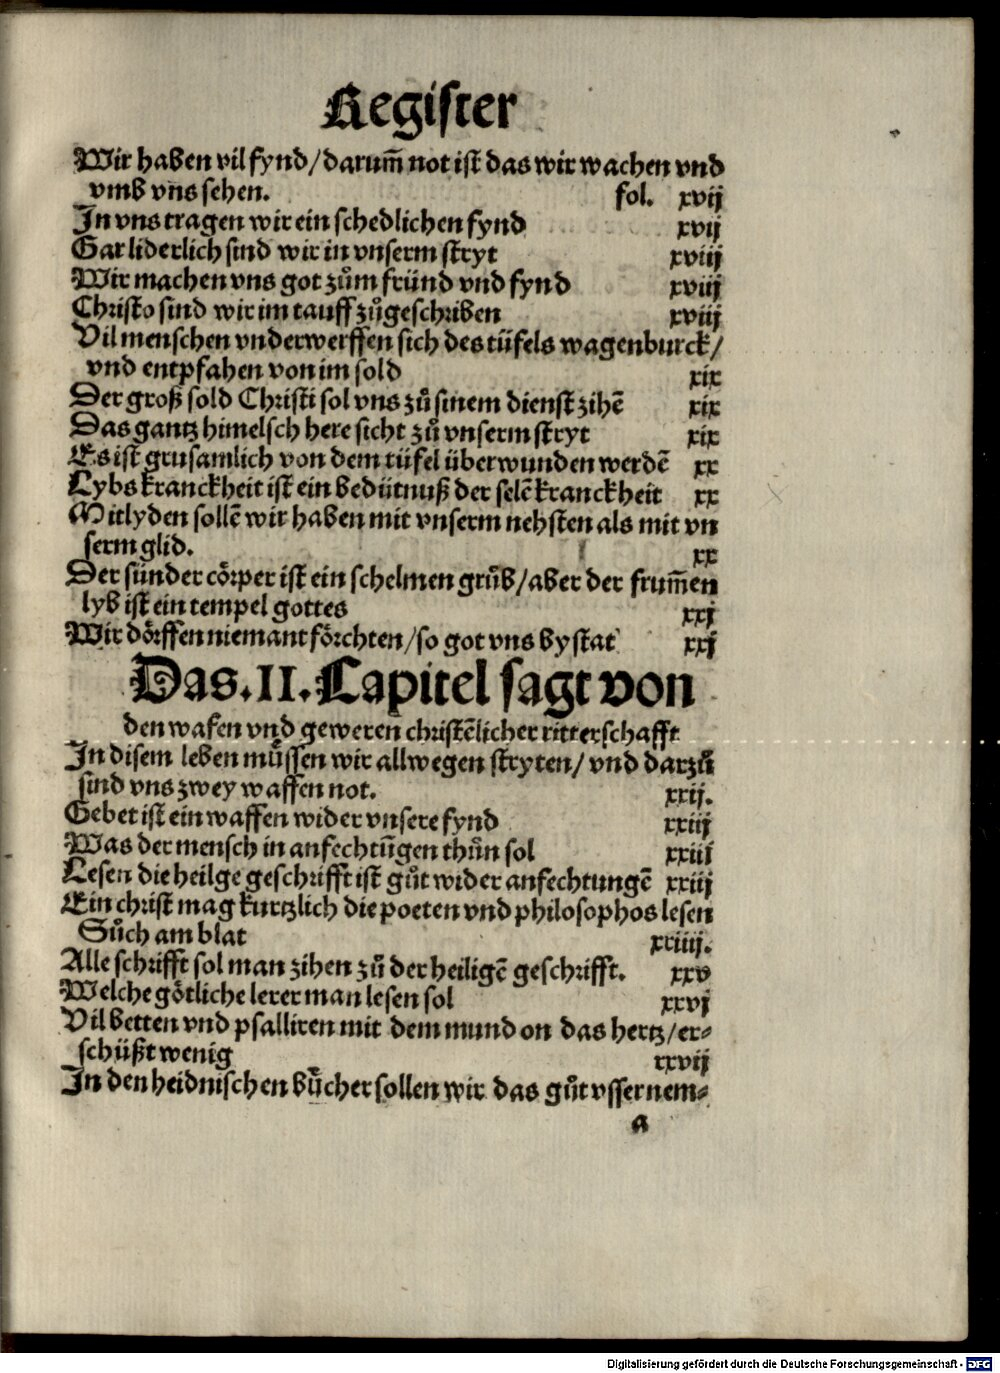 Register
Wir haben vil fynd/darum̄ not ist das wir wachen vnd
vmb vns sehen. fol. xvij
In vns tragen wir ein schedlichen fynd xvij
Gar liderlich sind wir in vnserm stryt xviij
Wir machen vns got zům fründ vnd fynd xviij
Christo sind wir im tauff zůgeschriben xviij
Vil menschen vnderwerffen sich des tüfels wagenburck/
vnd entpfahen von im sold xix
Der groß sold Christi sol vns zů sinem dienst zihē xix
Das gantz himelsch here sicht zů vnserm stryt xix
Es ist grusamlich von dem tüfel überwunden werdē xx
Lybs kranckheit ist ein bedütnuß der selē kranckheit xx
Mitlyden sollē wir haben mit vnserm nehsten als mit vn
serm glid. xx
Der sünder cörper ist ein schelmen grůb/aber der frum̄en
lyb ist ein tempel gottes xxj
Wir dörffen niemant förchten/so got vns bystat xxj
Das.II.Capitel sagt von
den wafen vnd geweren christēlicher ritterschafft
In disem leben müssen wir allwegen stryten/vnd darzů
sind vns zwey waffen not. xxij.
Gebet ist ein waffen wider vnsere fynd xxiij
Was der mensch in anfechtūgen thůn sol xxiij
Lesen die heilge geschrifft ist gůt wider anfechtungē xxiij
Ein christ mag kurtzlich die poeten vnd philosophos lesen
Sůch am blat xxiiij.
Alle schrifft sol man zihen zů der heiligē geschrifft. xxv
Welche götliche lerer man lesen sol xxvj
Vil betten vnd psalliren mit dem mund on das hertz/er⸗
schüßt wenig xxvij
In den heidnischen bůcher sollen wir das gůt vssernem⸗
a
Digitalisierung gefördert durch die Deutsche Forschungsgemeinschaft - DFG